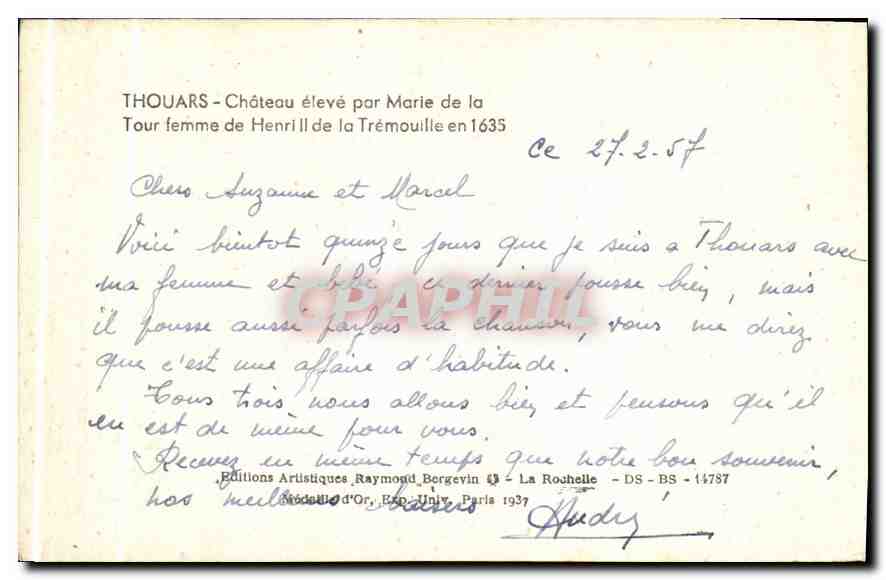 THOUARS - Château élevé par Marie de la
Tour femme de Henri II de la Trémouille en 1635
Ce 27.2.57
Chers Suzanne et Marcel
Voici bientot quinze jours que je suis a Thouars avec
ma femme et bébé ce dernier pousse bien, mais
CPAPHIL
il pousse aussi parfois la chanson, vous me direz
que c'est une affaire d'habitude.
Tous trois nous allons bien et pensons qu'il
en est de même pour vous.
Recevez en même temps que notre bon souvenir,
Editions Artistiques Raymond Bergevin - La Rochelle - DS - BS - 14787
nos meilleurs baisers
Médaille d'Or, Exp. Univ. Paris 1937
André